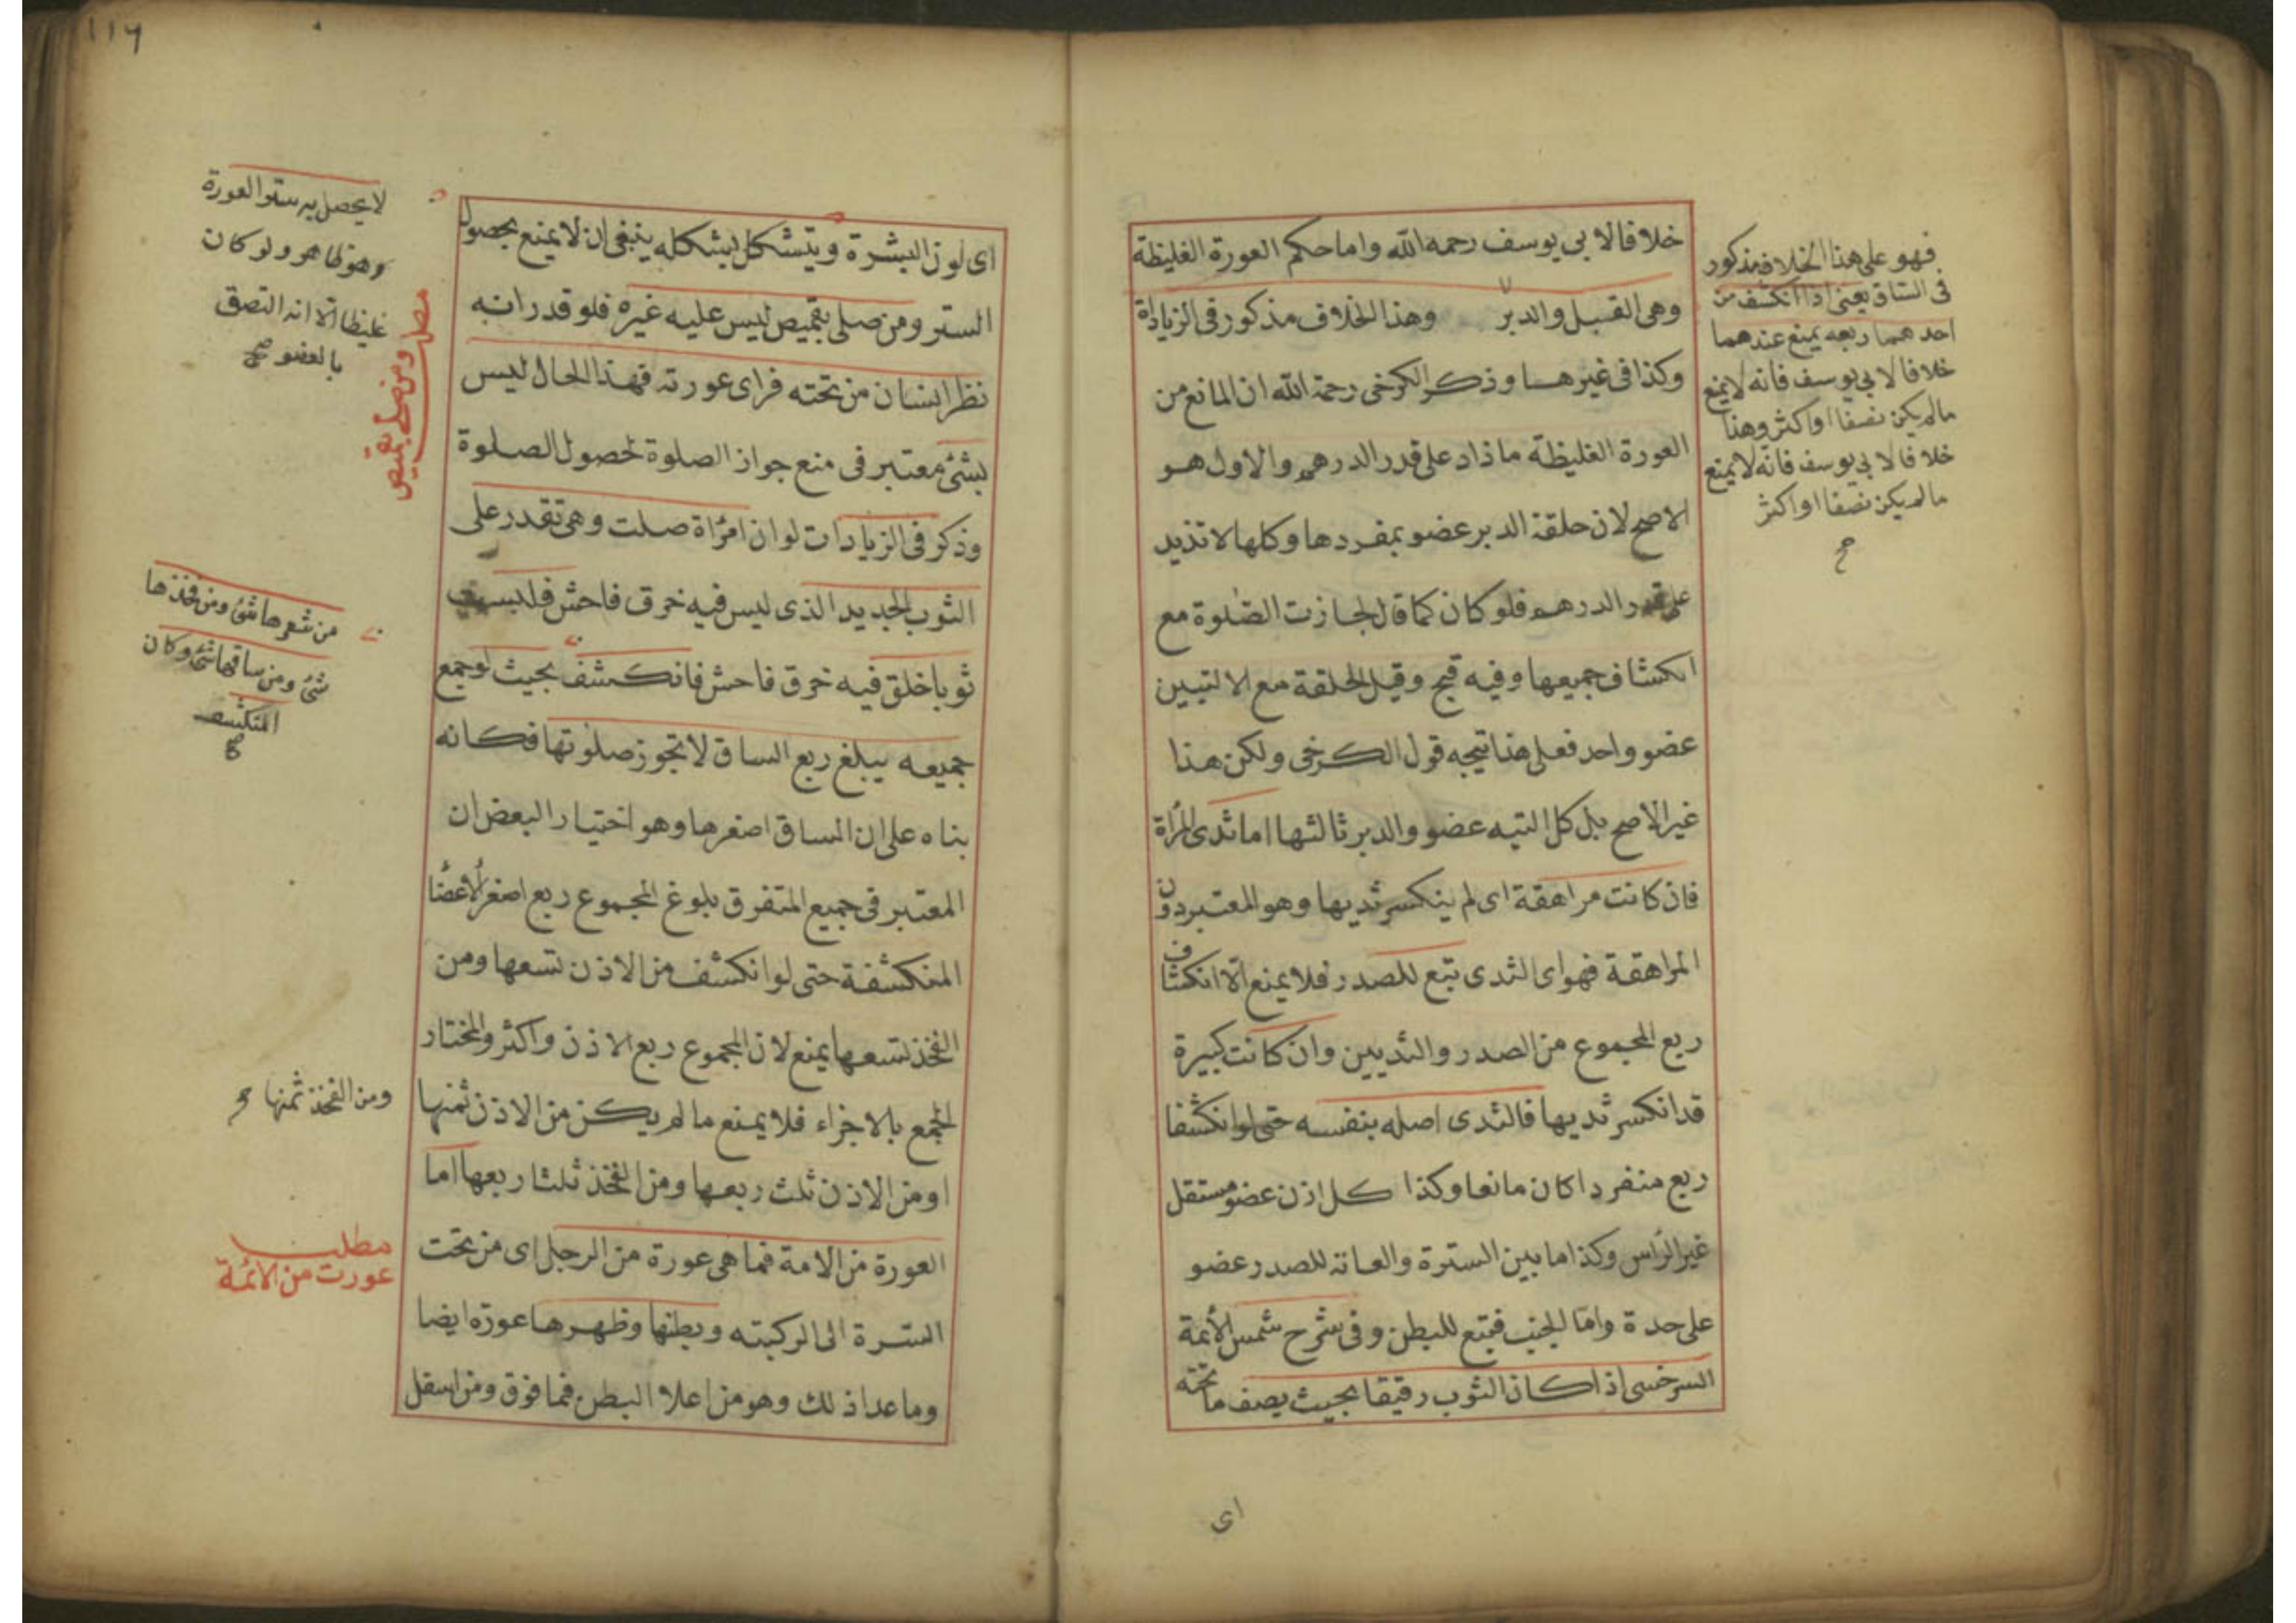 خلافا لابي يوسف رحمه الله واما حكم العورة الغليظة
وهى القبل والدبر وهذا الخلاف مذكور فى الزيادات
وكذا فى غيرها وذكر الكرخى رحمة الله ان المانع من
العورة الغليظة ما ذاد على قدر الدرهم والاول هو
الاصح لان حلقة الدبر عضو بمفردها وكلها لا تذيد
على قدر الدرهم فلو كان كما قال لجازت الصلوة مع
انكشاف جميعها وفيه قبح وقيل الحلقة مع الالتيين
عضو واحد فعلى هذا يتجه قول الكرخى ولكن هذا
غير الاصح بل كل التيه عضو والدبر ثالثها اما ثدى المرأة
فان كانت مراهقة اى لم ينكسر ثديها وهو المعتبر دون
المراهقة فهو اى الثدى تبع للصدر فلا يمنع الا انكشاف
ربع المجموع من الصدر والثديين وان كانت كبيرة
قد انكسر ثديها فالثدى اصله بنفسه حتى لو انكشفا
ربع منفردا كان مانعا وكذا كل اذن عضو مستقل
غير الرأس وكذا ما بين السترة والعانة للصدر عضو
على حدة واما الجنب فتبع للبطن وفى شرح شمس الأئمة
السرخسى اذا كان الثوب رقيقا بحيث يصف ما تحته
اى
فهو على هذا الخلاف مذكور
فى الساق يعنى اذا انكشف من
احدهما ربعه يمنع عندهما
خلافا لابي يوسف فانه لا يمنع
مالم يكن نصفا او اكثر وهذا
خلافا لابي يوسف فانه لا يمنع
مالم يكن نصفا او اكثر
١١٦
اى لون البشرة ويتشكل بشكله ينبغى ان لا يمنع بحصول
الستر ومن صلى بقميص ليس عليه غيره فلو قدر انه
نظر انسان من تحته فراى عورته فهذا الحال ليس
بشئ معتبر فى منع جواز الصلوة لحصول الصلوة
وذكر فى الزيادات لو ان امرأة صلت وهى تقدر على
الثوب الجديد الذى ليس فيه خرق فاحش فلبست
ثوبا خلق فيه خرق فاحش فانكشف بحيث لو جمع
جميعه يبلغ ربع الساق لا تجوز صلوتها فكانه
بناه على ان الساق اصغرها وهو اختيار البعض ان
المعتبر فى جميع المتفرق بلوغ المجموع ربع اصغر الاعضا
المنكشفة حتى لو انكشف من الاذن تسعها ومن
الفخذ تسعها يمنع لان المجموع ربع الاذن واكثر والمختار
الجمع بالاجزاء فلا يمنع ما لم يكن من الاذن ثمنها
او من الاذن ثلث ربعها ومن الفخذ ثلثا ربعها اما
العورة من الامة فما هى عورة من الرجل اى من تحت
السترة الى الركبته وبطنها وظهرها عورة ايضا
وما عدا ذلك وهو من اعلا البطن فما فوق ومن اسفل
لا يحصل به ستر العورة
وهو ظاهر ولو كان
غليظا الا انه التصق
بالعضو صح
ومن صلى بقميص
من شعرها شئ ومن فخذها
شئ ومن ساقها شئ وكان
المنكشف
صح
ومن الفخذ ثمنها
مطلب
عورت من الائمة